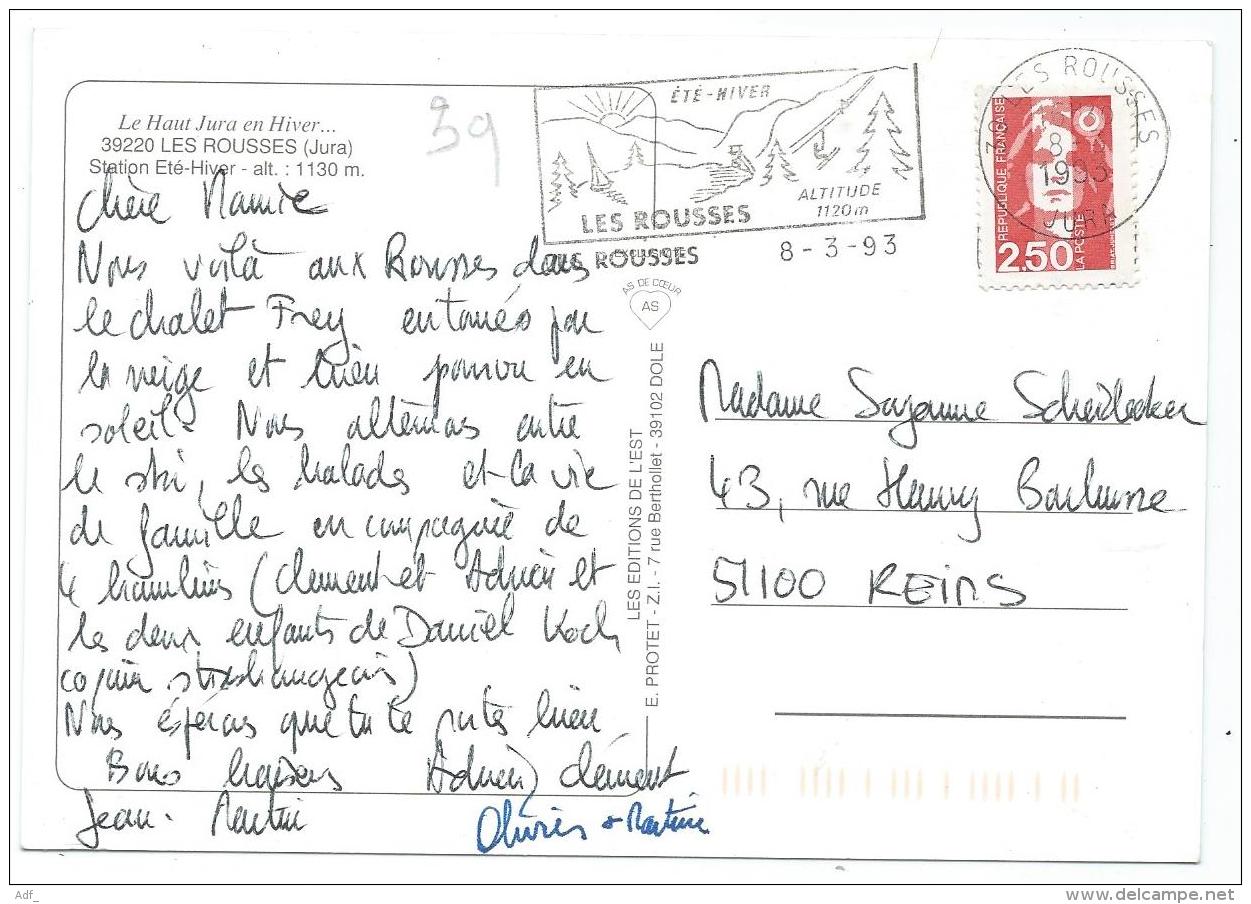 Le Haut Jura en Hiver...
39220 LES ROUSSES (Jura)
Station Eté-Hiver - alt. : 1130 m.
39
ÉTÉ-HIVER
ALTITUDE
1120m
LES ROUSSES
LES ROUSSES
8-3-93
39 LES ROUSSES
8
1993
JURA
REPUBLIQUE FRANÇAISE
2,50
LA POSTE
Chère Mamie
Nous voilà aux Rousses dans
le chalet Frey entourés par
la neige et bien pourvu en
soleil. Nous alternons entre
le ski, les balades et la vie
de famille en compagnie de
4 bambins (Clément et Adrien et
les deux enfants de Daniel Koch
copain strasbourgeois)
Nous espérons que tu te portes bien
Bons baisers Adrien, Clément
Jean. Martin
Olivier + Martine
AS DE CŒUR
AS
LES EDITIONS DE L'EST
E. PROTET - Z.I. - 7 rue Berthollet - 39102 DOLE
Madame Suzanne Scheidecker
43, rue Henry Barbusse
51100 REIMS
Adf_
delcampe.net